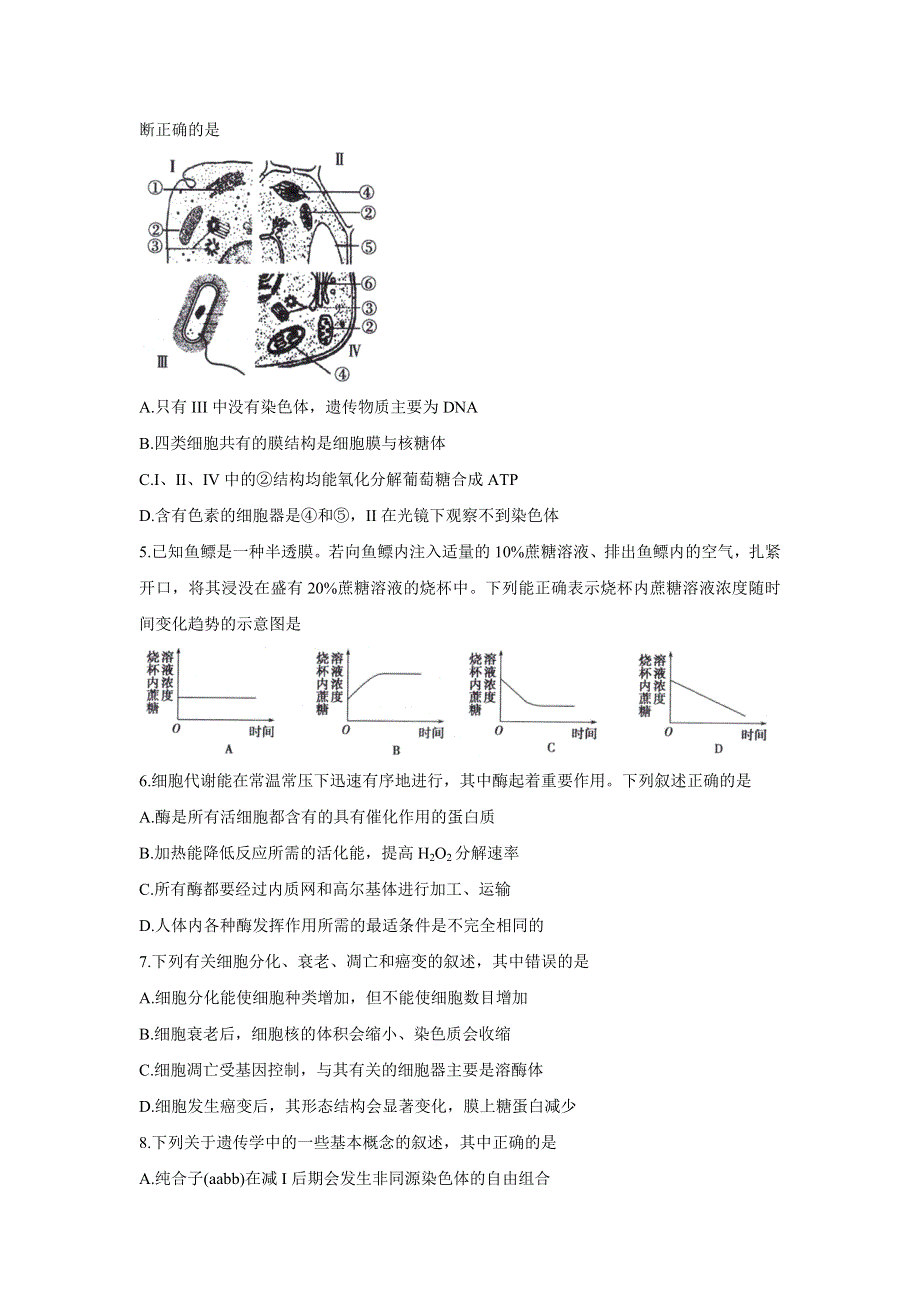 断正确的是
I
II
①
④
②
②
③
⑤
⑥
③
②
III
IV
④
A.只有 III 中没有染色体，遗传物质主要为 DNA
B.四类细胞共有的膜结构是细胞膜与核糖体
C.I、II、IV 中的②结构均能氧化分解葡萄糖合成 ATP
D.含有色素的细胞器是④和⑤，II 在光镜下观察不到染色体
5.已知鱼鳔是一种半透膜。若向鱼鳔内注入适量的 10%蔗糖溶液、排出鱼鳔内的空气，扎紧
开口，将其浸没在盛有 20%蔗糖溶液的烧杯中。下列能正确表示烧杯内蔗糖溶液浓度随时
间变化趋势的示意图是
烧杯内蔗糖溶液浓度
O
时间
A
烧杯内蔗糖溶液浓度
O
时间
B
烧杯内蔗糖溶液浓度
O
时间
C
烧杯内蔗糖溶液浓度
O
时间
D
6.细胞代谢能在常温常压下迅速有序地进行，其中酶起着重要作用。下列叙述正确的是
A.酶是所有活细胞都含有的具有催化作用的蛋白质
B.加热能降低反应所需的活化能，提高 H₂O₂ 分解速率
C.所有酶都要经过内质网和高尔基体进行加工、运输
D.人体内各种酶发挥作用所需的最适条件是不完全相同的
7.下列有关细胞分化、衰老、凋亡和癌变的叙述，其中错误的是
A.细胞分化能使细胞种类增加，但不能使细胞数目增加
B.细胞衰老后，细胞核的体积会缩小、染色质会收缩
C.细胞凋亡受基因控制，与其有关的细胞器主要是溶酶体
D.细胞发生癌变后，其形态结构会显著变化，膜上糖蛋白减少
8.下列关于遗传学中的一些基本概念的叙述，其中正确的是
A.纯合子(aabb)在减 I 后期会发生非同源染色体的自由组合